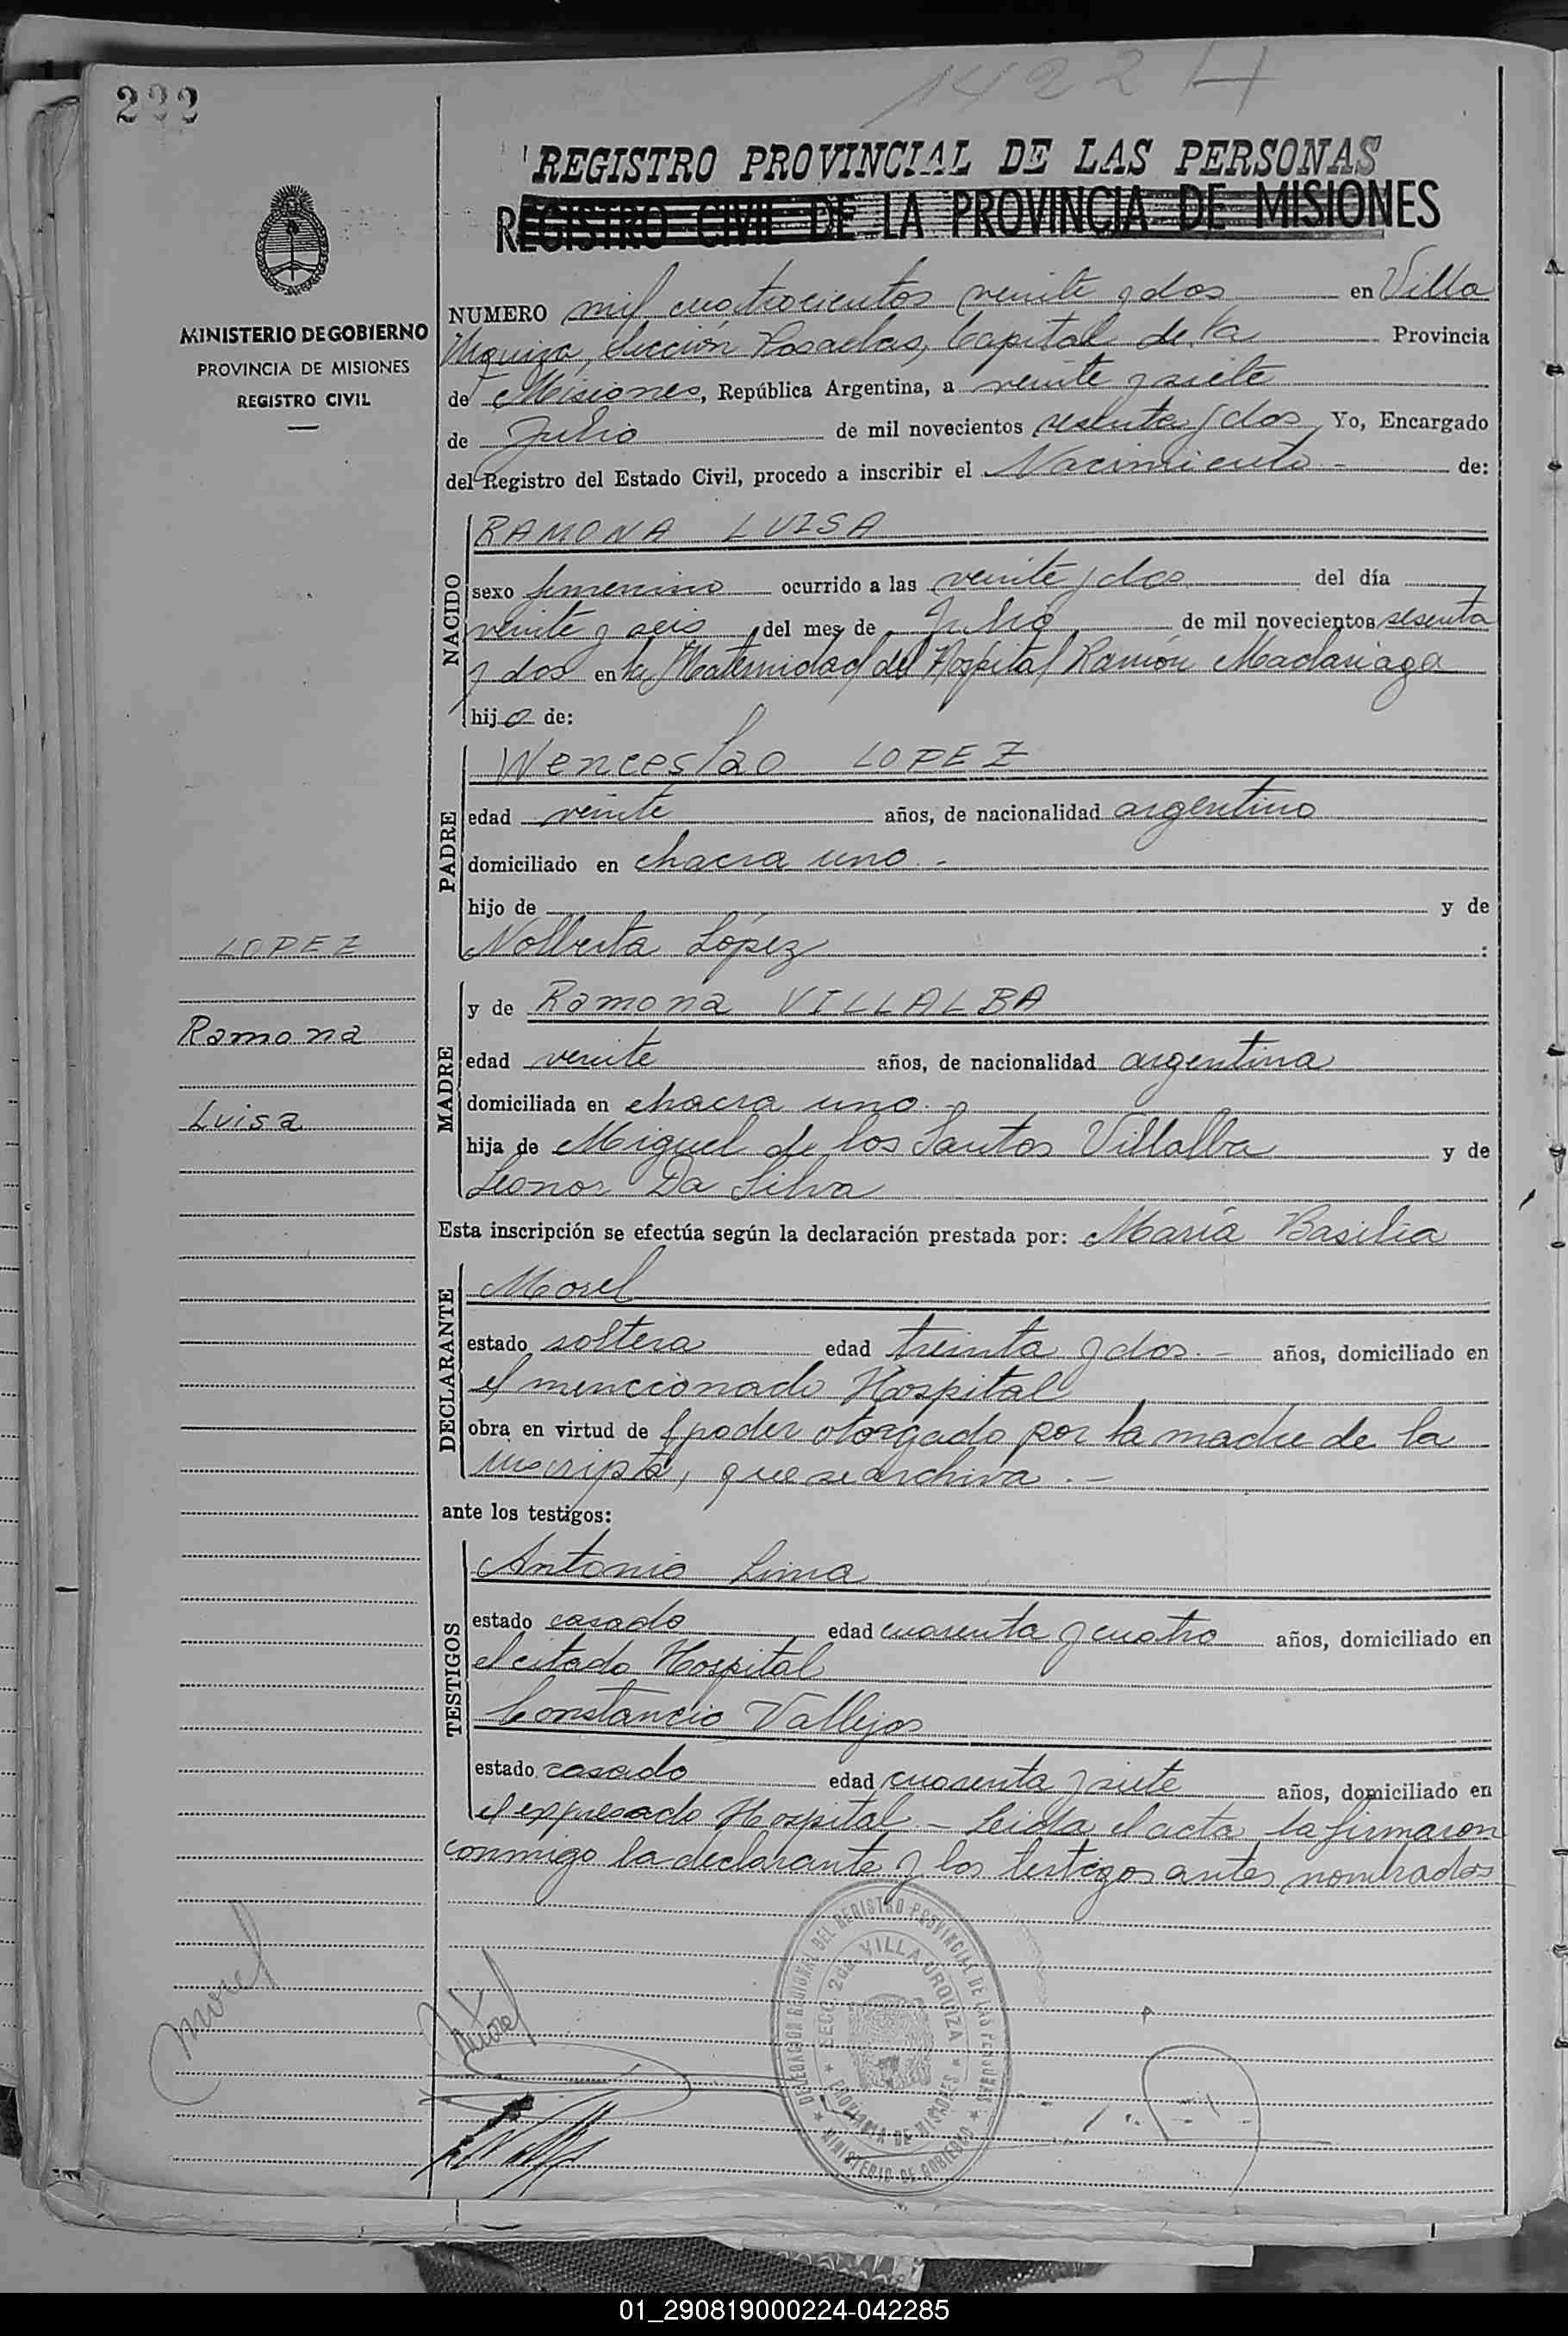 222
1422 H
REGISTRO PROVINCIAL DE LAS PERSONAS
REGISTRO CIVIL DE LA PROVINCIA DE MISIONES
MINISTERIO DE GOBIERNO
PROVINCIA DE MISIONES
REGISTRO CIVIL
NUMERO mil cuatrocientos veinte y dos en Villa
Urquiza, Sección Posadas, Capital de la Provincia
de Misiones, República Argentina, a veinte y siete
de Julio de mil novecientos sesenta y dos Yo, Encargado
del Registro del Estado Civil, procedo a inscribir el Nacimiento - de:
NACIDO
RAMONA LUISA
sexo femenino ocurrido a las veinte y dos del día
veinte y seis del mes de Julio de mil novecientos sesenta
y dos en la Maternidad del Hospital Ramón Madariaga
hija de:
PADRE
Wenceslao LOPEZ
edad veinte años, de nacionalidad argentino
domiciliado en chacra uno. -
hijo de y de
Nolberta López :
LOPEZ
Ramona
Luisa
MADRE
y de Ramona VILLALBA
edad veinte años, de nacionalidad argentina
domiciliada en chacra uno. -
hija de Miguel de los Santos Villalba y de
Leonor Da Silva
Esta inscripción se efectúa según la declaración prestada por: María Basilia
DECLARANTE
Morel
estado soltera edad treinta y dos. - años, domiciliado en
el mencionado Hospital
obra en virtud de poder otorgado por la madre de la
inscripta, que se archiva. -
ante los testigos:
TESTIGOS
Antonio Lima
estado casado edad cuarenta y cuatro años, domiciliado en
el citado Hospital
Constancio Vallejos
estado casado edad cuarenta y siete años, domiciliado en
el expresado Hospital - Leida el acta, la firmaron
conmigo la declarante y los testigos antes nombrados
DELEGACION REGIONAL DEL REGISTRO PROVINCIAL DE LAS PERSONAS
SECC. 2da. VILLA URQUIZA
PROVINCIA DE MISIONES
MINISTERIO DE GOBIERNO
Morel
01_290819000224-042285